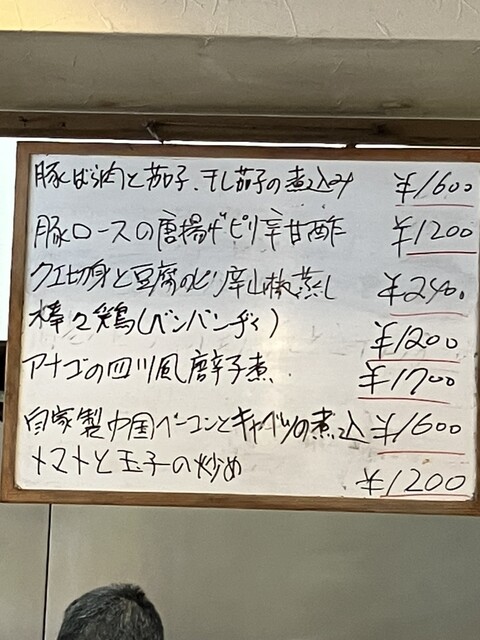 豚ばら肉と茄子、干し茄子の煮込み ¥1600
豚ロースの唐揚げピリ辛甘酢 ¥1200
クエ切身と豆腐のピリ辛山椒蒸し ¥2400
棒々鶏(バンバンヂィ) ¥1200
アナゴの四川風唐辛子煮 ¥1700
自家製中国ベーコンとキャベツの煮込 ¥1600
トマトと玉子の炒め ¥1200